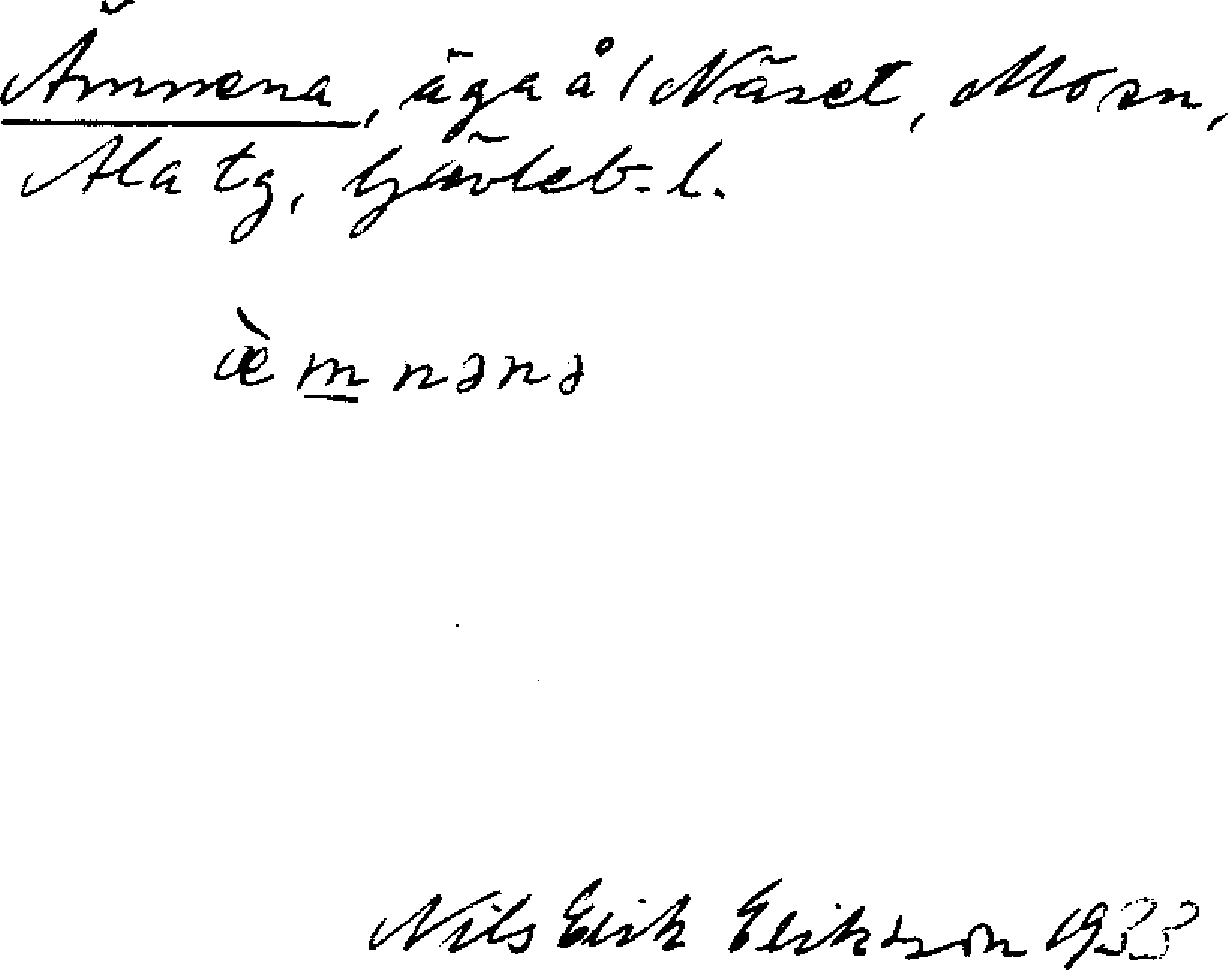 Ämnena, äga å / Näset, Mo sn,
Ala tg, Gävleb. l.
æ̀m̲nənə
Nils Erik Eriksson 1933